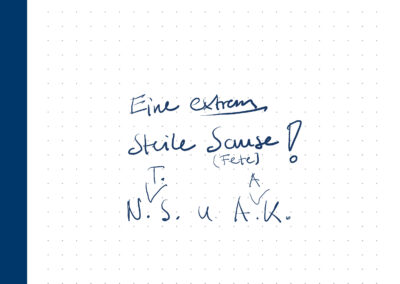 Eine extrem
steile Sause!
(Fete)
T. A
N. S. u A. K.